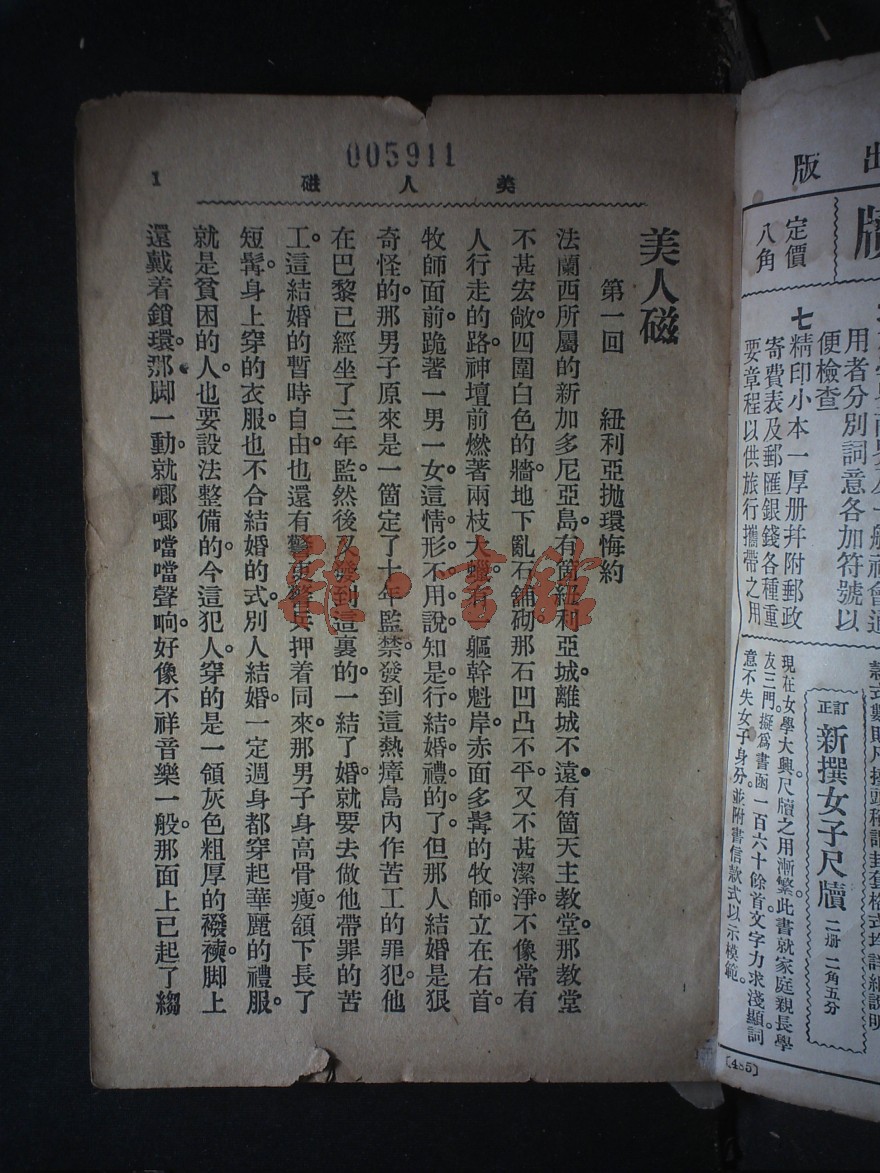 005911
美人磁
1
美人磁
第一回 紐利亞拋環悔約
法蘭西所屬的新加多尼亞島。有箇紐利亞城。離城不遠。有箇天主教堂。那教堂
不甚宏敞。四圍白色的牆。地下亂石鋪砌。那石凹凸不平。又不甚潔淨。不像常有
人行走的路。神壇前燃著兩枝大蠟。有一軀幹魁岸赤面多髯的牧師。立在右首。
牧師面前。跪著一男一女。這情形不用說知是行結婚禮的了。但那人結婚是狠
奇怪的。那男子原來是一箇定了十年監禁。發到這熱瘴島內作苦工的罪犯。他
在巴黎已經坐了三年監。然後又發到這裏的。一結了婚。就要去做他帶罪的苦
工。這結婚的暫時自由。也還有警吏警兵押着同來。那男子身高骨瘦。頷下長了
短髯。身上穿的衣服。也不合結婚的式。別人結婚。一定週身都穿起華麗的禮服。
就是貧困的人。也要設法整備的。今這犯人。穿的是一領灰色粗厚的襏襫。脚上
還戴着鎖環。那脚一動。就啷啷噹噹聲响。好像不祥音樂一般。那面上已起了縐
出版
牘
定價
八角
用者分別詞意各加符號以
便檢查
七 精印小本一厚册幷附郵政
寄費表及郵匯銀錢各種重
要章程以供旅行攜帶之用
訂正 新撰女子尺牘 二册 二角五分
現在女學大興。尺牘之用漸繁。此書就家庭親長學
友三門。擬爲書函一百六十餘首。文字力求淺顯。詞
意不失女子身分。並附書信款式以示模範。
〔485〕